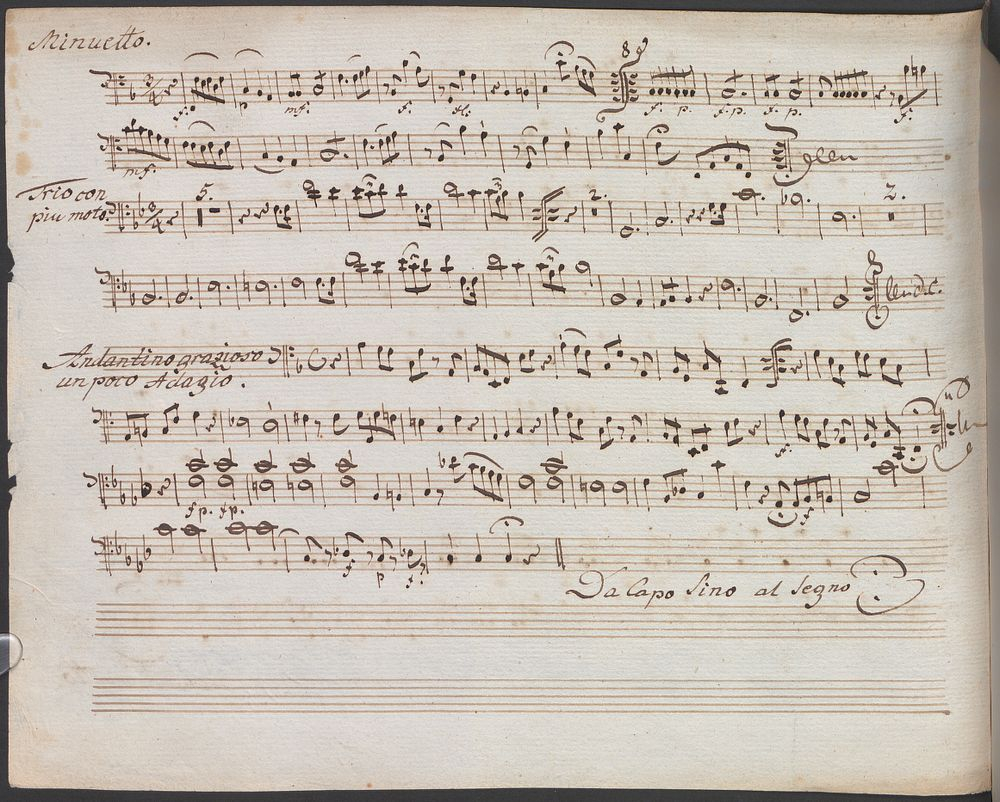 Minuetto.
f. p. mf. f. f. p. f. p. f. p. f.
mf.
Trio con
più moto. 5. 2. 2.
Andantino grazioso
un poco Adagio.
fp. fp. f
f p f
Da Capo Sino al Segno